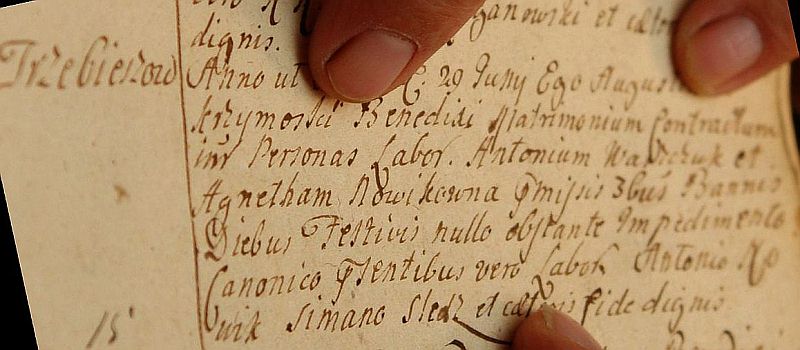 dignis.
Trzebieszow
Anno ut 29 Junij Ego
Krzymoski Benedixi Matrimonium Contractum
intr Personas Labor. Antonium et
Agnetham Nowikowna pmissis 3bus Bannis
Diebus Festivis nullo obstante Impedimento
Canonico psentibus vero Labor. Antonio No
wik Simano Sledz et caeteris fide dignis.
15